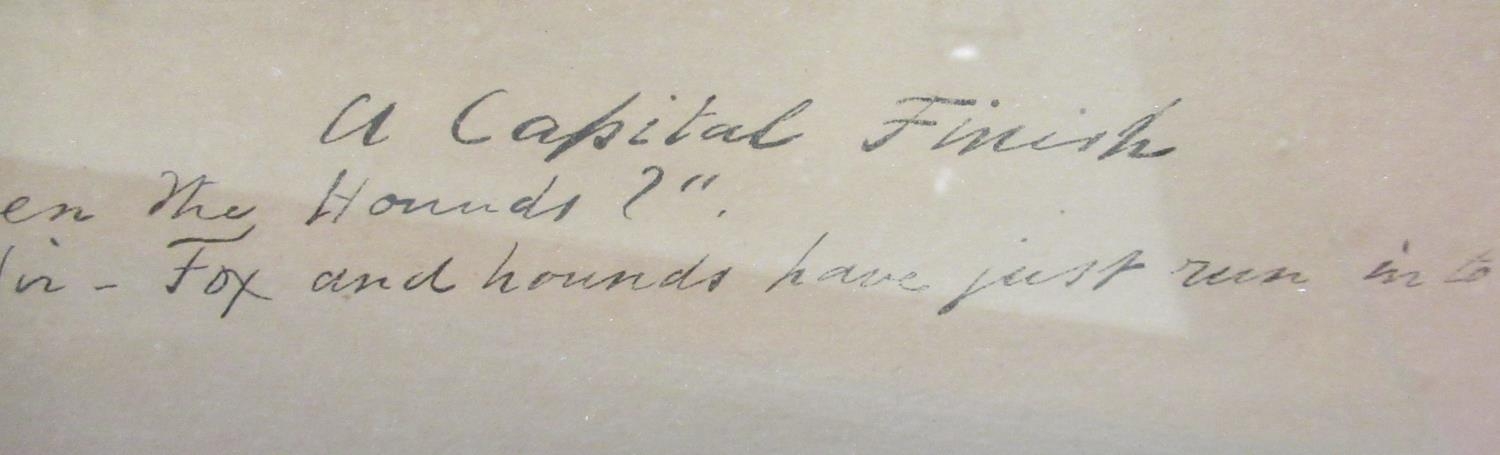 A Capital Finish
en the Hounds ?".
ir - Fox and hounds have just run into